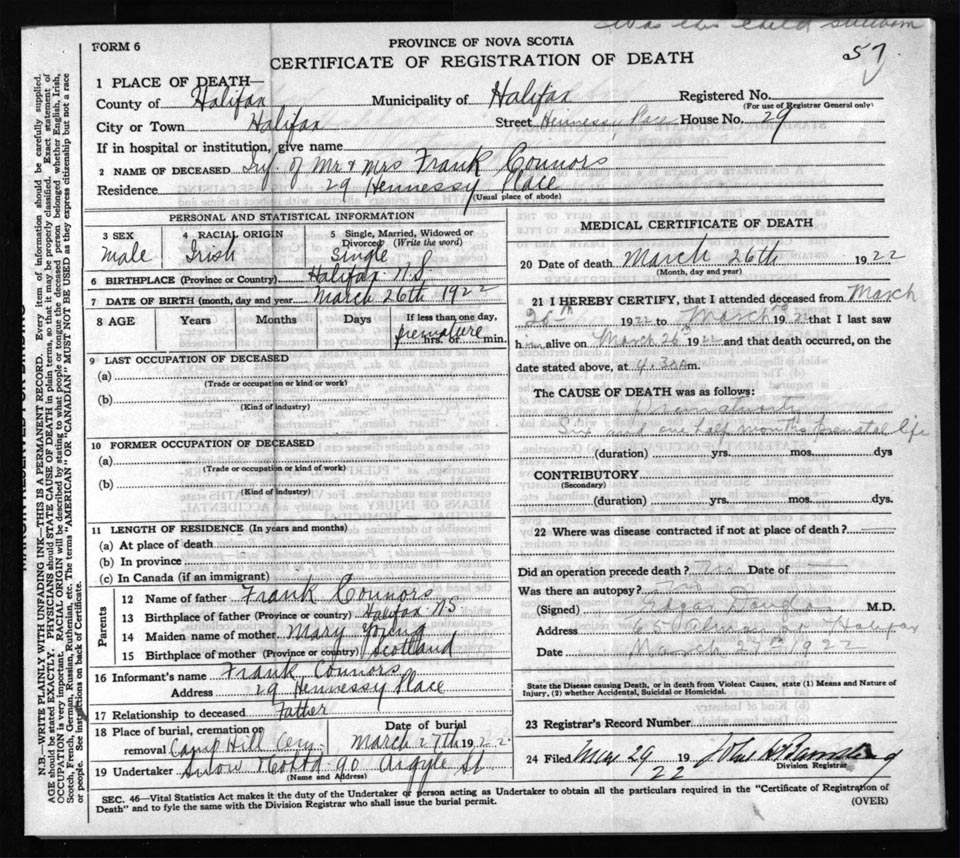 Was this child stillborn
FORM 6
57
PROVINCE OF NOVA SCOTIA
CERTIFICATE OF REGISTRATION OF DEATH
1 PLACE OF DEATH—
County of Halifax Municipality of Halifax Registered No.
(For use of Registrar General only)
City or Town Halifax Street Hennessy Place House No. 29
If in hospital or institution, give name
2 NAME OF DECEASED Inf. of Mr & Mrs Frank Connors
Residence 29 Hennessy Place
(Usual place of abode)
PERSONAL AND STATISTICAL INFORMATION
3 SEX
Male
4 RACIAL ORIGIN
Irish
5 Single, Married, Widowed or
Divorced (Write the word)
Single
6 BIRTHPLACE (Province or Country) Halifax N.S.
7 DATE OF BIRTH (month, day and year March 26th 1922
8 AGE Years Months Days If less than one day,
premature
hrs. or min.
9 LAST OCCUPATION OF DECEASED
(a)
(Trade or occupation or kind or work)
(b)
(Kind of industry)
10 FORMER OCCUPATION OF DECEASED
(a)
(Trade or occupation or kind or work)
(b)
(Kind of industry)
11 LENGTH OF RESIDENCE (In years and months)
(a) At place of death
(b) In province
(c) In Canada (if an immigrant)
Parents
12 Name of father Frank Connors
13 Birthplace of father (Province or country) Halifax N.S
14 Maiden name of mother Mary Young
15 Birthplace of mother (Province or country) Scotland
16 Informant's name Frank Connors
Address 29 Hennessy Place
17 Relationship to deceased Father
18 Place of burial, cremation or Date of burial
removal Camp Hill Cem. March 27th 1922
19 Undertaker Snow & Co Ltd 90 Argyle St
(Name and Address)
MEDICAL CERTIFICATE OF DEATH
20 Date of death March 26th 1922
(Month, day and year)
21 I HEREBY CERTIFY, that I attended deceased from March
1922 to March 1922 that I last saw
him alive on March 26 1922 and that death occurred, on the
date stated above, at 4.30 A m.
The CAUSE OF DEATH was as follows:
Prematurity
Six and one half months prenatal life
(duration) yrs. mos. dys
CONTRIBUTORY
(Secondary)
(duration) yrs. mos. dys.
22 Where was disease contracted if not at place of death?
Did an operation precede death? No Date of —
Was there an autopsy? No
(Signed) Edgar M.D.
Address 65 Halifax
Date March 27th 1922
State the Disease causing Death, or in death from Violent Causes, state (1) Means and Nature of
Injury, (2) whether Accidental, Suicidal or Homicidal.
23 Registrar's Record Number
24 Filed Mar 29 19 John
22
Division Registrar
SEC. 46—Vital Statistics Act makes it the duty of the Undertaker or person acting as Undertaker to obtain all the particulars required in the "Certificate of Registration of
Death" and to fyle the same with the Division Registrar who shall issue the burial permit.
(OVER)
N.B.—WRITE PLAINLY WITH UNFADING INK—THIS IS A PERMANENT RECORD. Every item of information should be carefully supplied.
AGE should be stated EXACTLY. PHYSICIANS should STATE CAUSE OF DEATH in plain terms, so that it may be properly classified. Exact statement of
OCCUPATION is very important. RACIAL ORIGIN will be described by stating to what people or tongue the deceased person belonged whether English, Irish,
Scotch, French, German, Russian, Ruthenian, etc. The terms "AMERICAN" or "CANADIAN" MUST NOT BE USED as they express citizenship but not a race
or people. See instructions on back of Certificate.